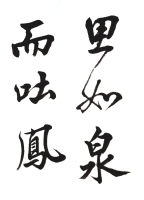 思如泉
而吐鳳